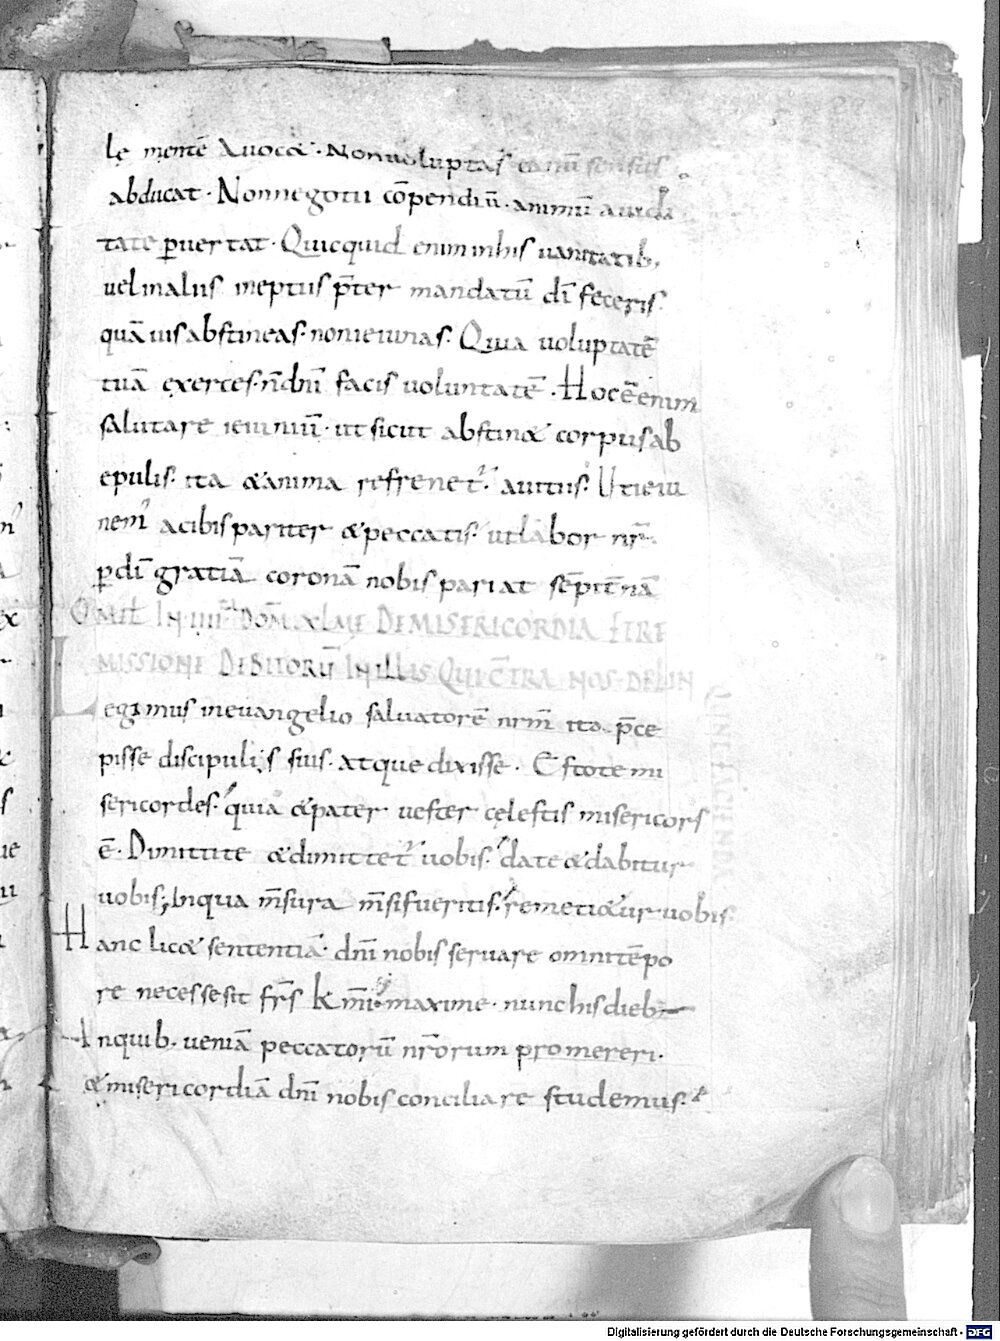 lę mentē auocet. Non uoluptas carnis sensus
abducat. Non negotii cōpendiū. animū auidi
tate ꝑuertat. Quicquid enim in his uanitatib;
uel in aliis ineptiis p̄ter mandatū dī feceris.
quāuis abstineas. non ieiunas. Quia uoluptatē
tuā exerces. n̄ dn̄i facis uoluntatē. Hoc ē enim
salutare ieiuniū. ut sicut abstinet corpus ab
epulis. ita et anima refrenet̄. a uitiis. Ut ieiu
nem̄ a cibis pariter et peccatis. ut labor nr̄
ꝑ dī gratiā coronā nobis pariat sēpit̄nā
OMIL IN IIII DOM̄ XLME DE MISERICORDIA ET RE
MISSIONE DEBITORŪ IN ILLIS QUI C̄TRA NOS DELIN
Legimus in euangelio saluatorē nrm̄ ita p̄ce
pisse discipulis suis. atque dixisse. Estote mi
sericordes. quia et pater uester cęlestis misericors
ē. Dimittite et dimittet̄ uobis. date et dabitur
uobis; In qua m̄sura m̄si fueritis. remetietur uobis.
Hanc licet sententiā. dn̄i nobis seruare omni tēpo
re necesse sit fr̄s k̄mi. maxime. nunc his dieb;
In quib. ueniā peccatorū nr̄orum promereri.
et misericordiā dn̄i nobis conciliare studemus.
Digitalisierung gefördert durch die Deutsche Forschungsgemeinschaft - DFG